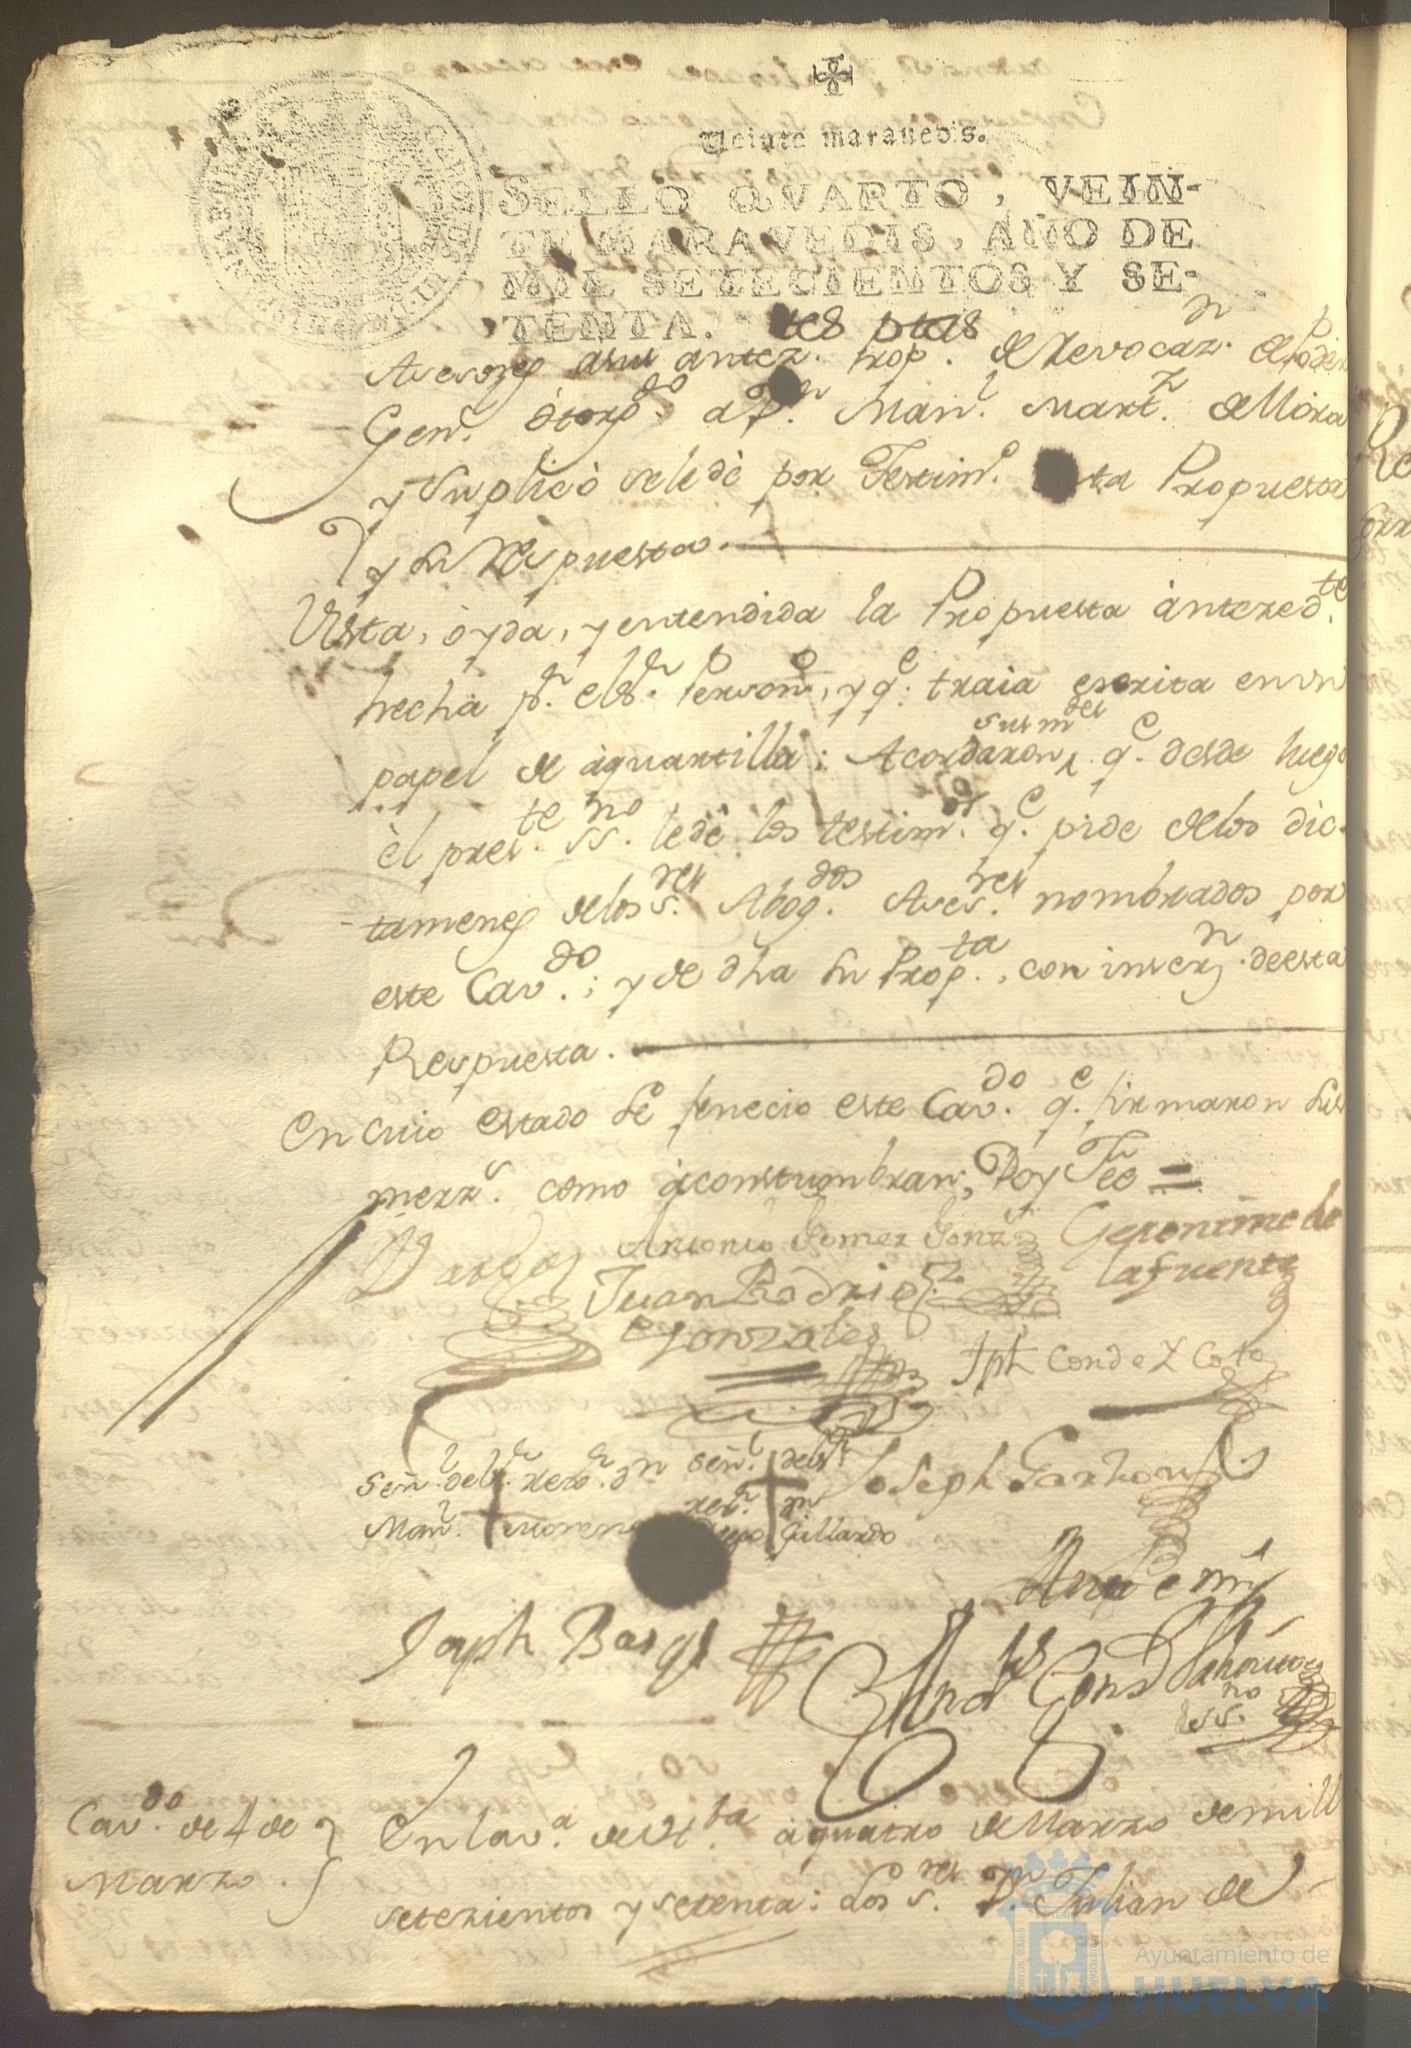 Veinte maravedis.
SELLO QVARTO, VEIN-
TE MARAVEDIS, AÑO DE
MIL SETECIENTOS Y SE-
TENTA.
Asesores antez. Prop. de Revocazn. de Poder
Genl. òtorgdo. a Dn. Manl. Martz. de Mora
y Suplicò se le dè por Testimo. ta Propuesta
y su Respuesta.
Vista, òyda, y entendida la Propuesta àntezedte.
hecha pr. el Sr. Persono., y qe. traia escrita en un
papel de àquartilla; Acordaron sus mdes qe. desde luego
èl preste. ssno. le dè los testimos. qe. pide de los dic-
tamenes de los sres. Abogdos. Asesres. nombrados por
este Cavdo.; y de dha su Propta., con inserzn. de esta
Respuesta.
En cuio estado se fenecio este Cavdo. qe. firmaron sus
merzs. como àconstumbran; Doy Fee =
Antonio Gomez Gonz
Geronimo de
la fuente
Juan Rodrigz.
Gonzales
Jph Conde Y Coto
Señl. del Sr. rexor. Dn
Manl. Moreno
Señl. del Sr
rexr. Dn
Diego Gallardo
Joseph Garzon
Joseph Barg
Ante mi
ssno
Cavdo. de 4 de
Marzo.
En la va. de Hba à quatro de Marzo de mill
setezientos y setenta: Los sres. Dn. Julian de
Ayuntamiento de
HUELVA